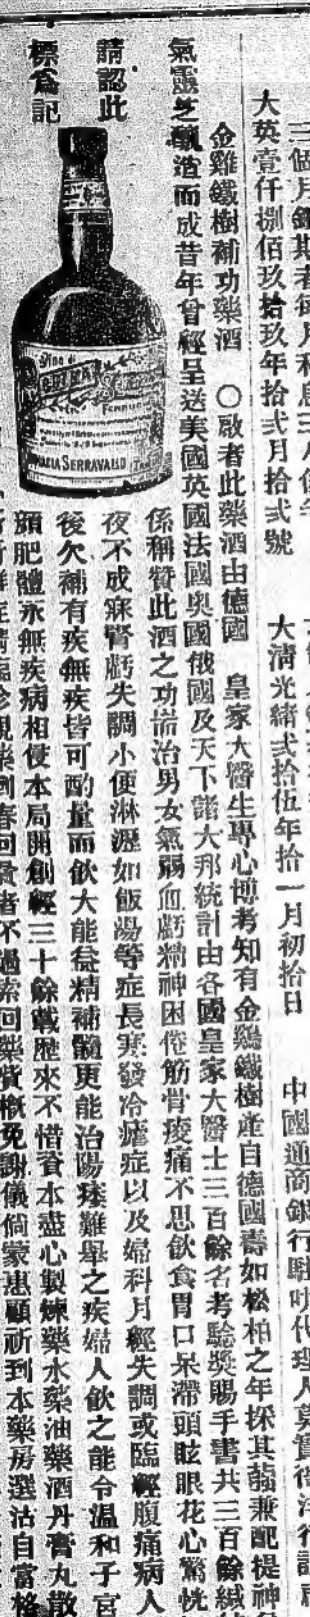 大英壹仟捌佰玖拾玖年拾弍月拾弍號
大清光緒弍拾伍年拾一月初拾日
中國通商銀行駐叻代理人
金雞鐵樹補功藥酒 〇啟者此藥酒由德國 皇家大醫生專心博考知有金鷄鐵樹產自德國壽如松柏之年採其蕊兼配提神
氣靈芝釀造而成昔年曾經呈送美國英國法國奧國俄國及天下諸大邦統計由各國皇家大醫士三百餘名考驗獎賜手書共三百餘緘
係稱贊此酒之功耑治男女氣弱血虧精神困倦筋骨痠痛不思飲食胃口呆滯頭眩眼花心驚
請認此
夜不成寐腎虧失調小便淋瀝如飯湯等症長寒發冷瘧症以及婦科月經失調或臨經腹痛病人
標爲記
後欠補有疾無疾皆可酌量而飲大能益精補髓更能治陽痿難舉之疾婦人飲之能令温和子宮
顏肥體永無疾病相侵本局開創經三十餘載歷來不惜資本盡心製煉藥水藥油藥酒丹膏丸散
症請臨診視藥到春回貧者不過索回藥資概免謝儀倘蒙惠顧祈到本藥房選沽自當格
Vino di
CHINA
Ferruginoso
SERRAVALLO